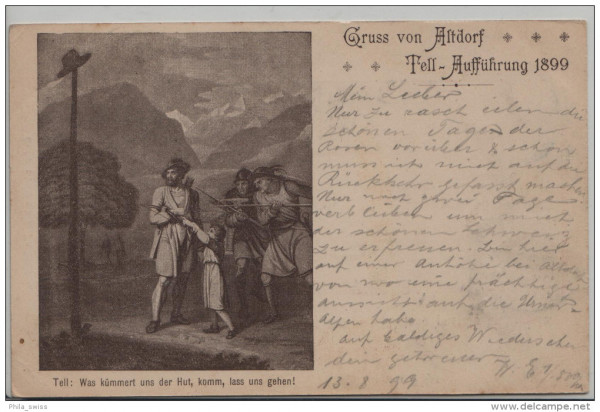 Gruss von Altdorf
Tell-Aufführung 1899
Mein Lieber
Nur zu rasch eilen die
schönen Tage der
vorüber & schon
muss ich mich auf die
Rückkehr gefasst machen
Nur noch zwei Tage
verbleiben um mich
der schönen Schweiz
zu erfreuen. Bin hier
auf einer Anhöhe bei Altdorf
von wo eine prächtige
Aussicht auf die Urner-
Alpen habe.
Auf baldiges Wiedersehen
dein getreuer
13. 8 99
Tell: Was kümmert uns der Hut, komm, lass uns gehen!
Phila_swiss
delcampe.net